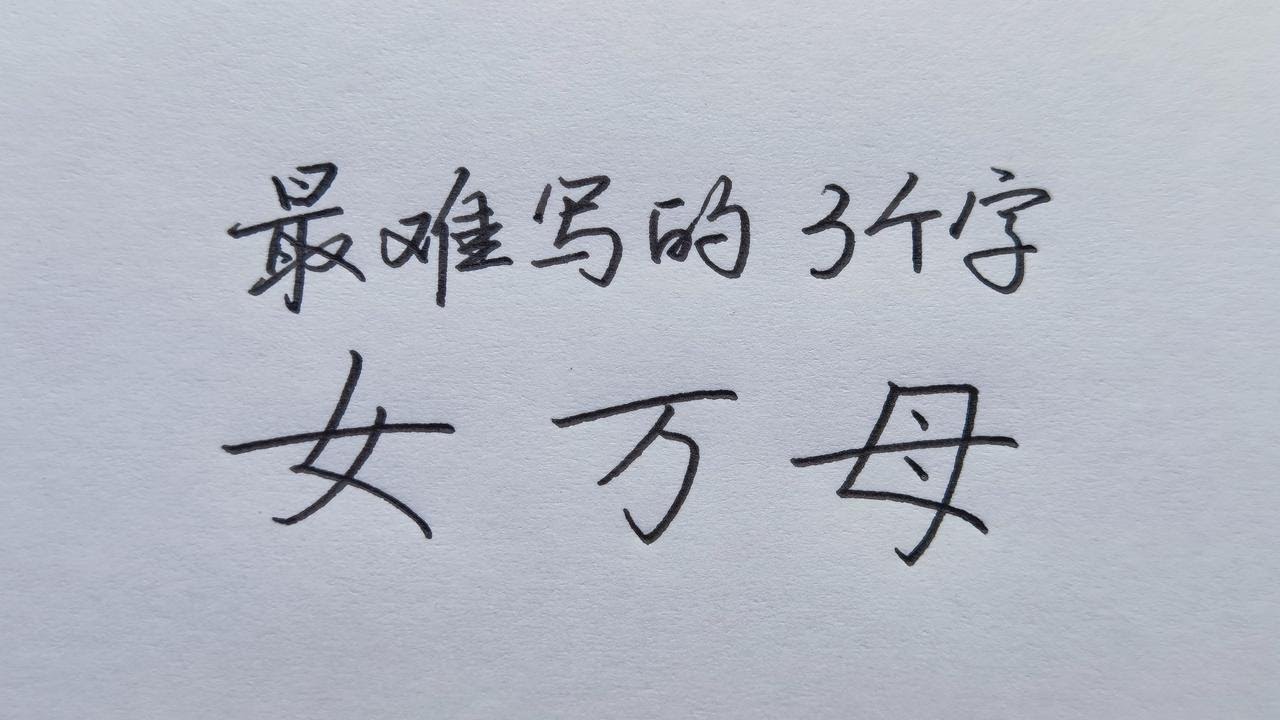 最难写的3个字
女万母